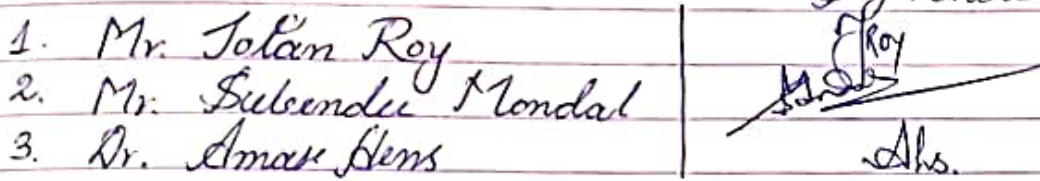 1. Mr. Totan Roy Roy
2. Mr. Subendu Mondal
3. Dr. Amar Hens Ahs.